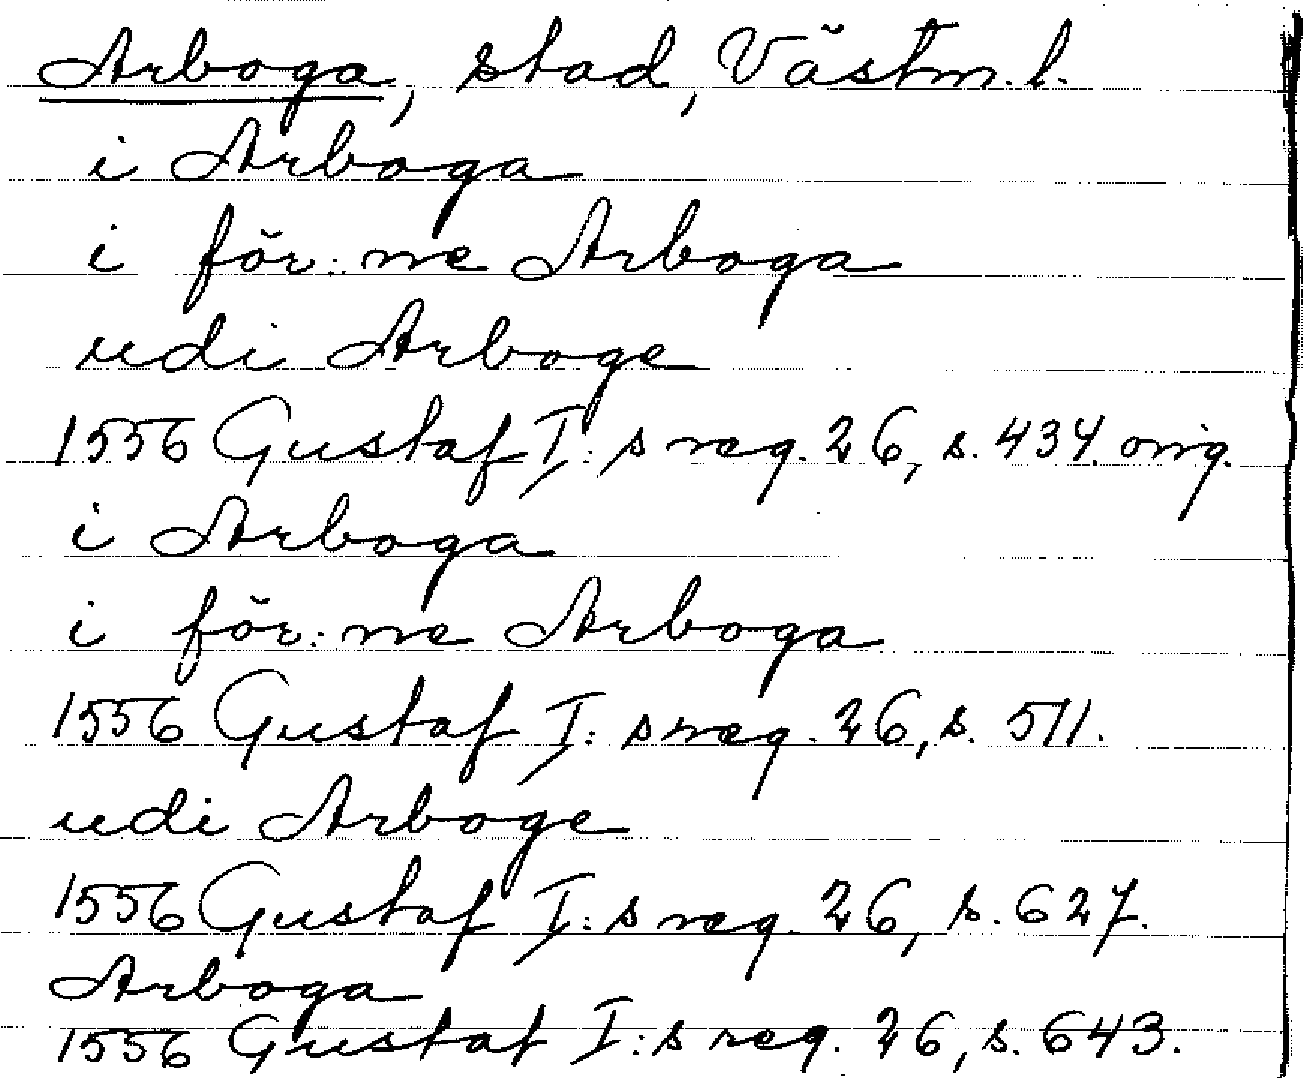 Arboga, stad, Västm. l.
i Arboga
i för: ne Arboga
udi Arboge
1556 Gustaf I: s reg. 26, s. 434. orig.
i Arboga
i för: ne Arboga
1556 Gustaf I: s reg. 26, s. 511.
udi Arboge
1556 Gustaf I: s reg. 26, s. 627.
Arboga
1556 Gustaf I: s reg. 26, s. 643.